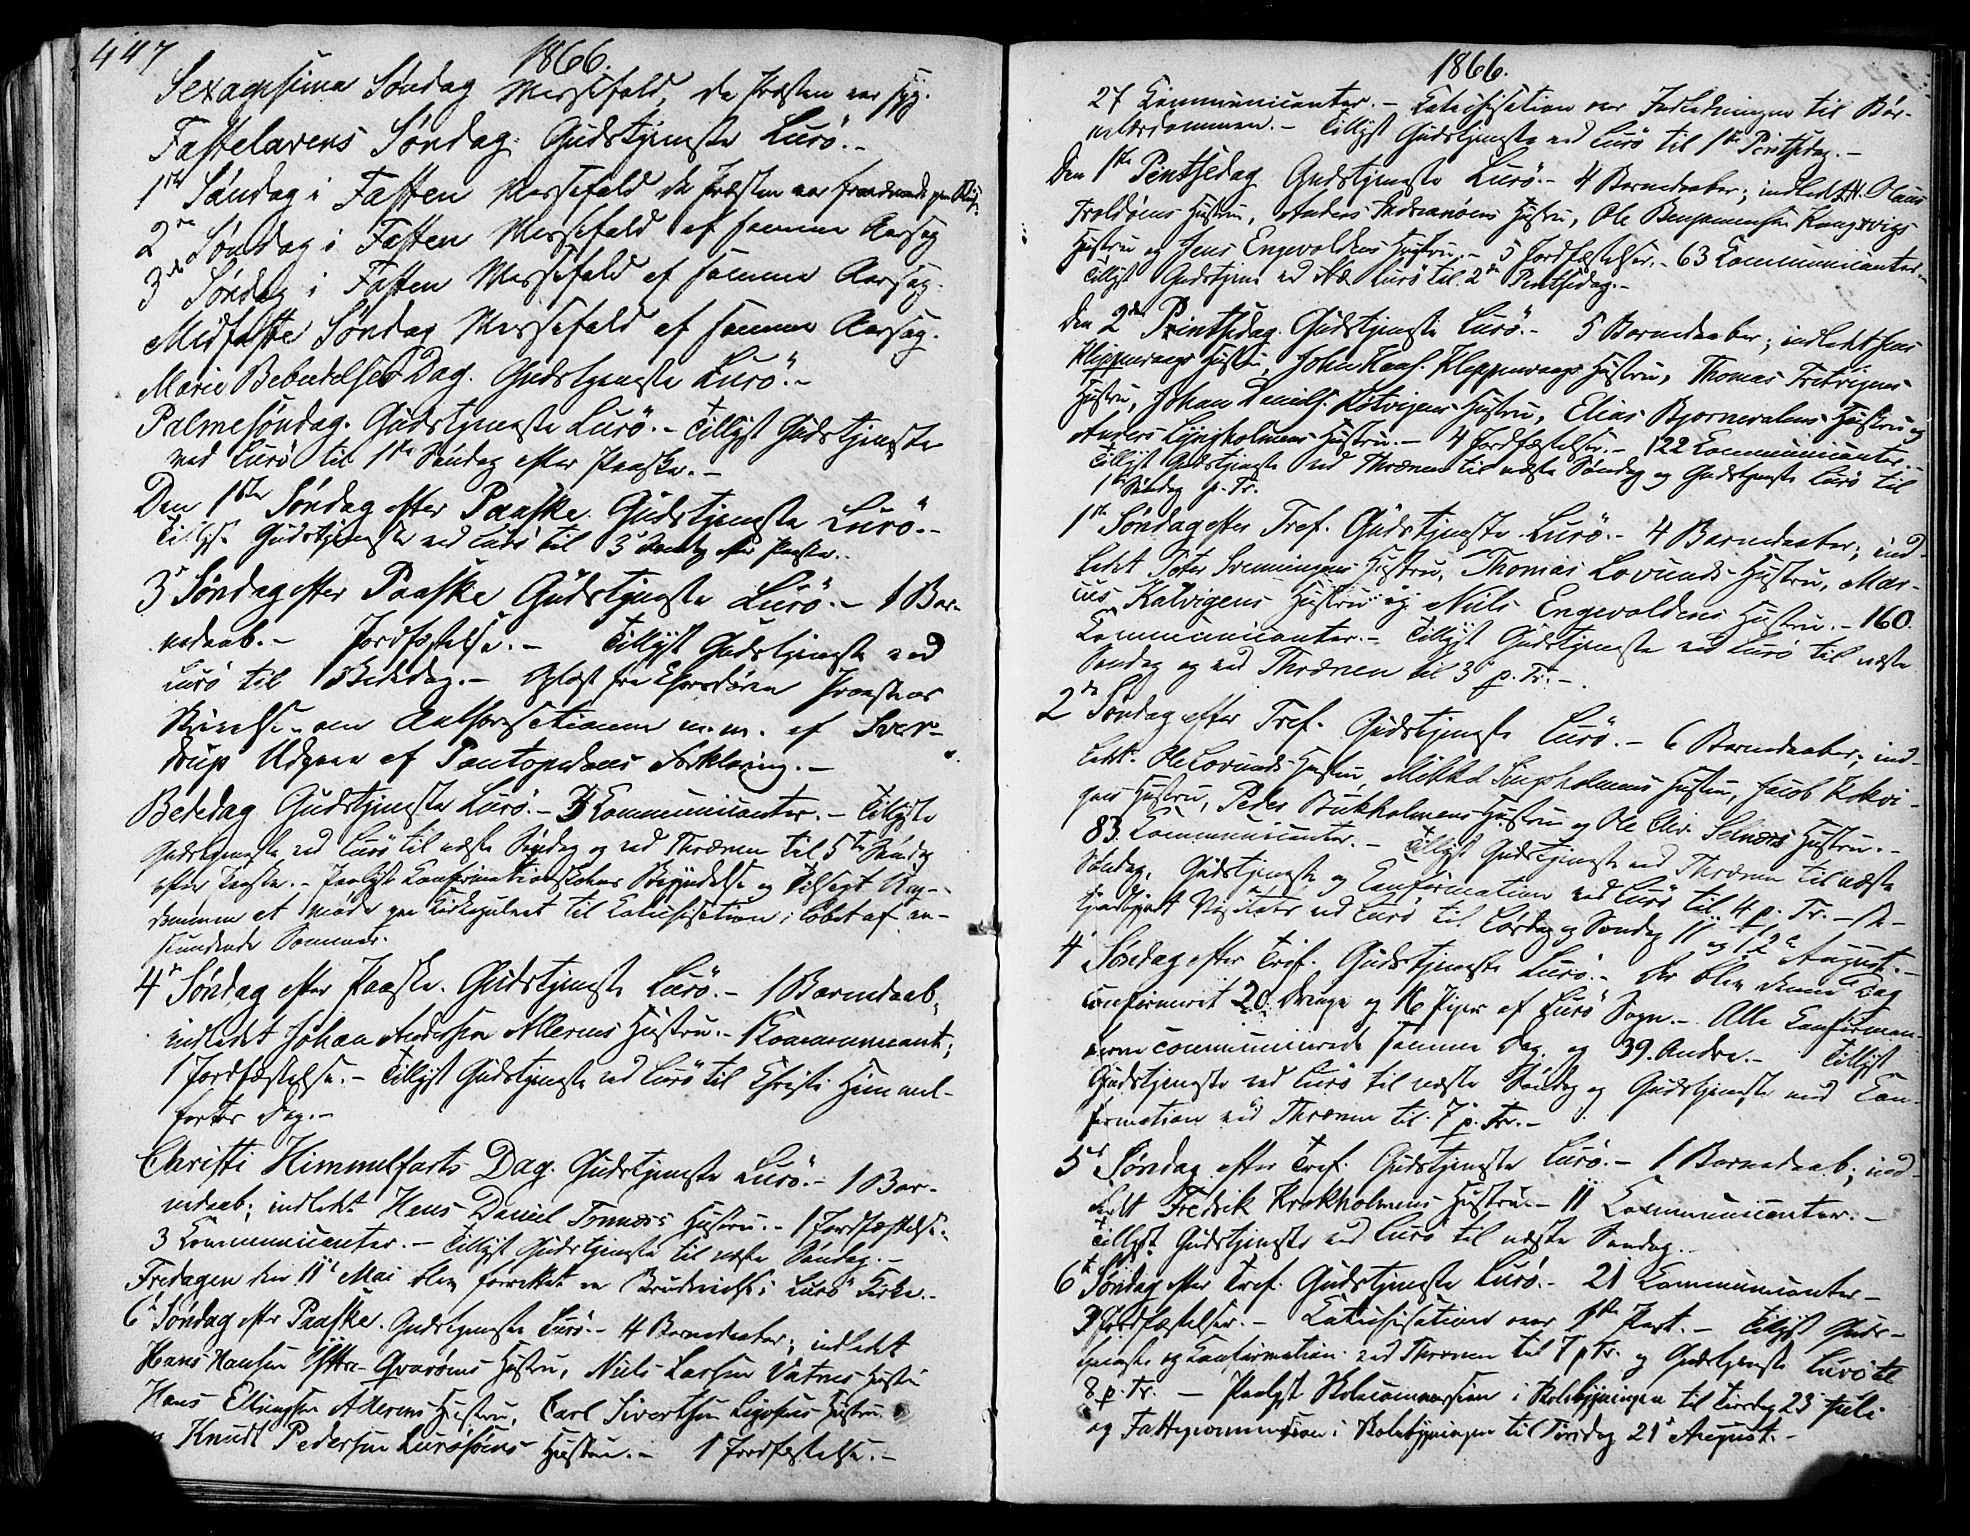 447
1866.
Sexagesima Søndag Messefald, da Præsten var syg.
Fastelavens Søndag. Gudstjeneste Lurö.-
1ste Søndag i Fasten Messefald da Præsten var fraværende paa
2den Søndag i Fasten Messefald af samme Aarsag
3die Søndag i Fasten Messefald af samme Aarsag.
Midfaste Søndag Messefald af samme Aarsag.
Marie Bebudelses Dag. Gudstjeneste Lurö.-
Palmesøndag. Gudstjeneste Lurö.- Tillyst Gudstjeneste
ved Lurö til 1ste Søndag efter Paaske.-
Den 1ste Søndag efter Paaske Gudstjeneste Lurö.-
Tillyst Gudstjeneste ved Lurö til 3 Søndag efter Paaske.-
3 Søndag efter Paaske Gudstjeneste Lurö.- 1 Bar-
nedaab.- Jordfæstelse.- Tillyst Gudstjeneste ved
Lurö til Bededag.- Oplæst fra Chorsdøren Provstens
Skrivelse om Authorisationen m.m. af Sver-
drup Udgave af Pontopidans Forklaring.-
Bededag Gudstjeneste Lurö.- 3 Kommunicanter.- Tillyste
Gudstjeneste ved Lurö til næste Søndag og ved Thrænen til 5te Søndag
efter Paaske.- Paalyst Konfirmationsskolens Begyndelse og Tilsagt Ung-
dommen at møde paa Kirkegulvet til Katechisation i Løbet af an-
stundende Sommer.
4 Søndag efter Paaske. Gudstjeneste Lurö.- 1 Barnedaab,
indledet Johan Andersen Alderens Hustru.- 1 Kommunicant;
1 Jordfæstelse.- Tillyst Gudstjeneste ved Lurö til Christi Himmel-
farts Dag.-
Christi Himmelfarts Dag. Gudstjeneste Lurö.- 1 Bar-
nedaab; indledet Hans Daniel Tonnæs Hustru.- 1 Jordfæstelse.-
3 Kommunicanter.- Tillyst Gudstjeneste til næste Søndag.-
Fredagen den 11 Mai blev forrettet en Brudevielse i Lurö Kirke.-
6 Søndag efter Paaske. Gudstjeneste Lurö.- 4 Barnedaaber; indledet
Hans Hansen Yttre-Qvarøens Hustru, Niels Larsen Vatnes Hustru
Hans Ellingsen Alderens Hustru, Carl Sivertsen Hustru
Knudt Pedersen Hustru.- 1 Jordfæstelse.-
1866.
27 Kommunicanter.- Katechisation over Indledningen til Bør-
nelærdommen.- Tillyst Gudstjeneste ved Lurö til 1ste Pintsedag.-
Den 1ste Pintsedag Gudstjeneste Lurö.- 4 Barnedaaber; indledet Olaus
Troldøens Hustru, Anders Hustru, Ole Benjaminsen Kongsvigs
Hustru og Jens Engevoldsens Hustru.- 5 Jordfæstelser.- 63 Kommunicanter.-
Tillyst Gudstjen. ved Lurö til 2den Pintsedag.-
Den 2den Pintsedag. Gudstjeneste Lurö.- 5 Barnedaaber; indledet Jens
Kleppevaags Hustru, Johan Kleppevaags Hustru, Thomas Hustru
Hustru, Johan Daniels. Kokvigens Hustru, Elias Hustru og
Anders Lyngholmens Hustru.- 4 Jordfæstelser.- 122 Kommunicanter.-
Tillyst Gudstjeneste ved Thrænen til næste Søndag og Gudstjeneste Lurö til
1ste Søndag p. Tr.
1ste Søndag efter Tref. Gudstjeneste Lurö.- 4 Barnedaaber; ind-
ledet Peter Svenningsens Hustru, Thomas Lovunds Hustru, Mar-
cus Kalvigens Hustru og Niels Engevoldsens Hustru.- 160
Kommunicanter.- Tillyst Gudstjeneste ved Lurö til næste
Søndag og ved Thrænen til 3 p. Tr.-
2den Søndag efter Tref. Gudstjeneste Lurö.- 6 Barnedaaber; ind-
ledet: Ole Lovunds Hustru, Mikkel Hustru, Jacob Kokvi-
gens Hustru, Peder Bukholmens Hustru og Ole Chr. Selnæs Hustru.-
83 Kommunicanter.- Tillyst Gudstjeneste ved Thrænen til næste
Søndag, Gudstjeneste og Confirmation ved Lurö til 4 p. Tr.-
Visitats ved Lurö til Lørdag og Søndag 11 og 12 August.-
4 Søndag efter Tref. Gudstjeneste Lurö.- Der blev denne Dag
confirmeret 20 Drenge og 16 Piger af Lurö Sogn.- Alle Konfirman-
derne communicerede samme Dag og 39 Andre.- Tillyst
Gudstjeneste ved Lurö til næste Søndag og Gudstjeneste med Con-
firmation ved Thrænen til 7 p. Tr.-
5 Søndag efter Tref. Gudstjeneste Lurö.- 1 Barnedaab; ind-
ledt Fredrik Krokholmens Hustru.- 11 Kommunicanter.-
Tillyst Gudstjeneste ved Lurö til næste Søndag.-
6 Søndag efter Tref. Gudstjeneste Lurö.- 21 Kommunicanter.-
3 Jordfæstelser.- Katechisation over 1ste Part.- Tillyst Guds-
tjeneste og Konfirmation ved Thrænen til 7 p Tr. og Gudstjeneste Lurö til
8 p. Tr.- Paalyst Skolecommission i Skolebygningen til Tirsdag 23 Juli
og Fattigcommission i Skolebygningen til Tirsdag 21 August.-